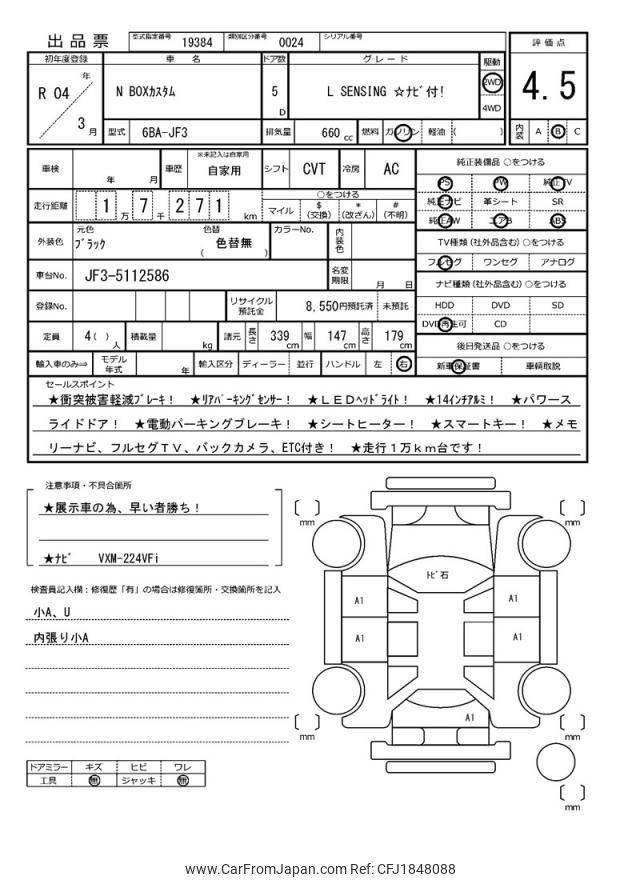 出品票 型式指定番号 19384 類別区分番号 0024 シリアル番号
初年度登録 車名 ドア数 グレード 駆動 評価点
R 04 年 3 月 N BOXカスタム 5 D L SENSING ☆ナビ付! 2WD 4WD 4.5
型式 6BA-JF3 排気量 660 cc 燃料 ガソリン 軽油 ( ) 内装 A B C
車検 年 月 車歴 ※未記入は自家用 自家用 シフト CVT 冷房 AC 純正装備品 ○をつける
PS PW 純正TV
走行距離 1 万 7 千 2 7 1 km ○をつける 純正ナビ 革シート SR
マイル $ (交換) * (改ざん) # (不明) 純正AW エアB ABS
外装色 元色 ブラック 色替 色替無 ( ) カラーNo. 内装色 TV種類 (社外品含む) ○をつける
フルセグ ワンセグ アナログ
車台No. JF3-5112586 名変期限 月 日 ナビ種類 (社外品含む) ○をつける
登録No. リサイクル預託金 8,550円預託済 未預託 HDD DVD SD
DVD再生可 CD
定員 4( ) 人 積載量 kg 諸元 長さ 339 cm 幅 147 cm 高さ 179 cm 後日発送品 ○をつける
輸入車のみ⇒ モデル年式 年 輸入区分 ディーラー 並行 ハンドル 左 右 新車保証書 車輌取説
セールスポイント
★衝突被害軽減ブレーキ! ★リアパーキングセンサー! ★LEDヘッドライト! ★14インチアルミ! ★パワース
ライドドア! ★電動パーキングブレーキ! ★シートヒーター! ★スマートキー! ★メモ
リーナビ、フルセグTV、バックカメラ、ETC付き! ★走行1万km台です!
注意事項・不具合箇所
★展示車の為、早い者勝ち!
★ナビ VXM-224VFi
検査員記入欄:修復歴「有」の場合は修復箇所・交換箇所を記入
小A、U
内張り小A
mm
mm
トビ石
A1
A1
A1
A1
A1
mm
mm
mm
ドアミラー キズ ヒビ ワレ
工具 無 ジャッキ 無
www.CarFromJapan.com Ref: CFJ1848088